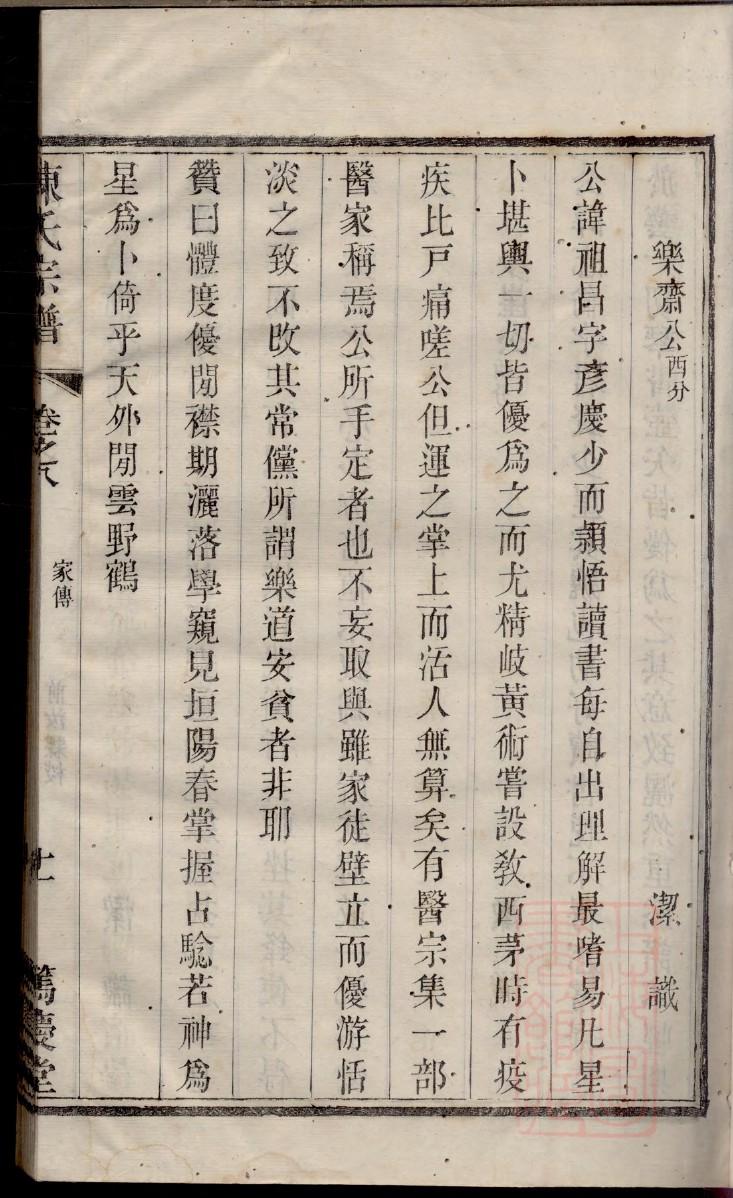 樂齋公西分 潔識
公諱祖昌字彥慶少而穎悟讀書每自出理解最嗜易凡星
卜堪輿一切皆優爲之而尤精岐黃術嘗設教西茅時有疫
疾比戸痛嗟公但運之掌上而活人無算矣有醫宗集一部
醫家稱焉公所手定者也不妄取與雖家徒壁立而優游恬
淡之致不改其常儻所謂樂道安貧者非耶
贊曰體度優閒襟期灑落學窺見垣陽春掌握占騐若神爲
星爲卜倚乎天外閒雲野鶴
陳氏宗譜 卷之八 家傳 十一 篤慶堂